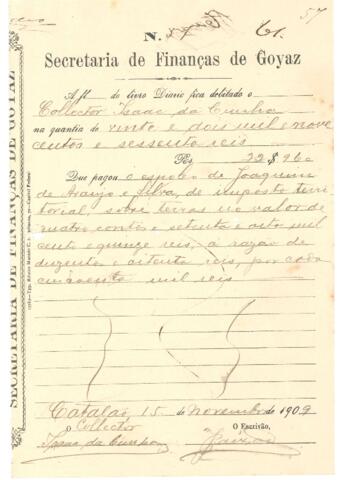 57
N. 61.
Secretaria de Finanças de Goyaz
A fl. do livro Diario fica debitado o
Collector Isaac da Cunha
na quantia de vinte e dois mil e nove
centos e sessenta reis
Rs. 22$960
Que pagou o espolio de Joaquim
de Araujo e Silva, de imposto terri-
torial, sobre terras no valor de
quatro contos e setenta e oito mil
cento e quinze reis, á razão de
duzentos e oitenta reis, por cada
cincoenta mil reis
Catalão, 15 de Novembro de 1909
O Collector O Escrivão,
Isaac da Cunha
SECRETARIA DE FINANÇAS DE GOYAZ